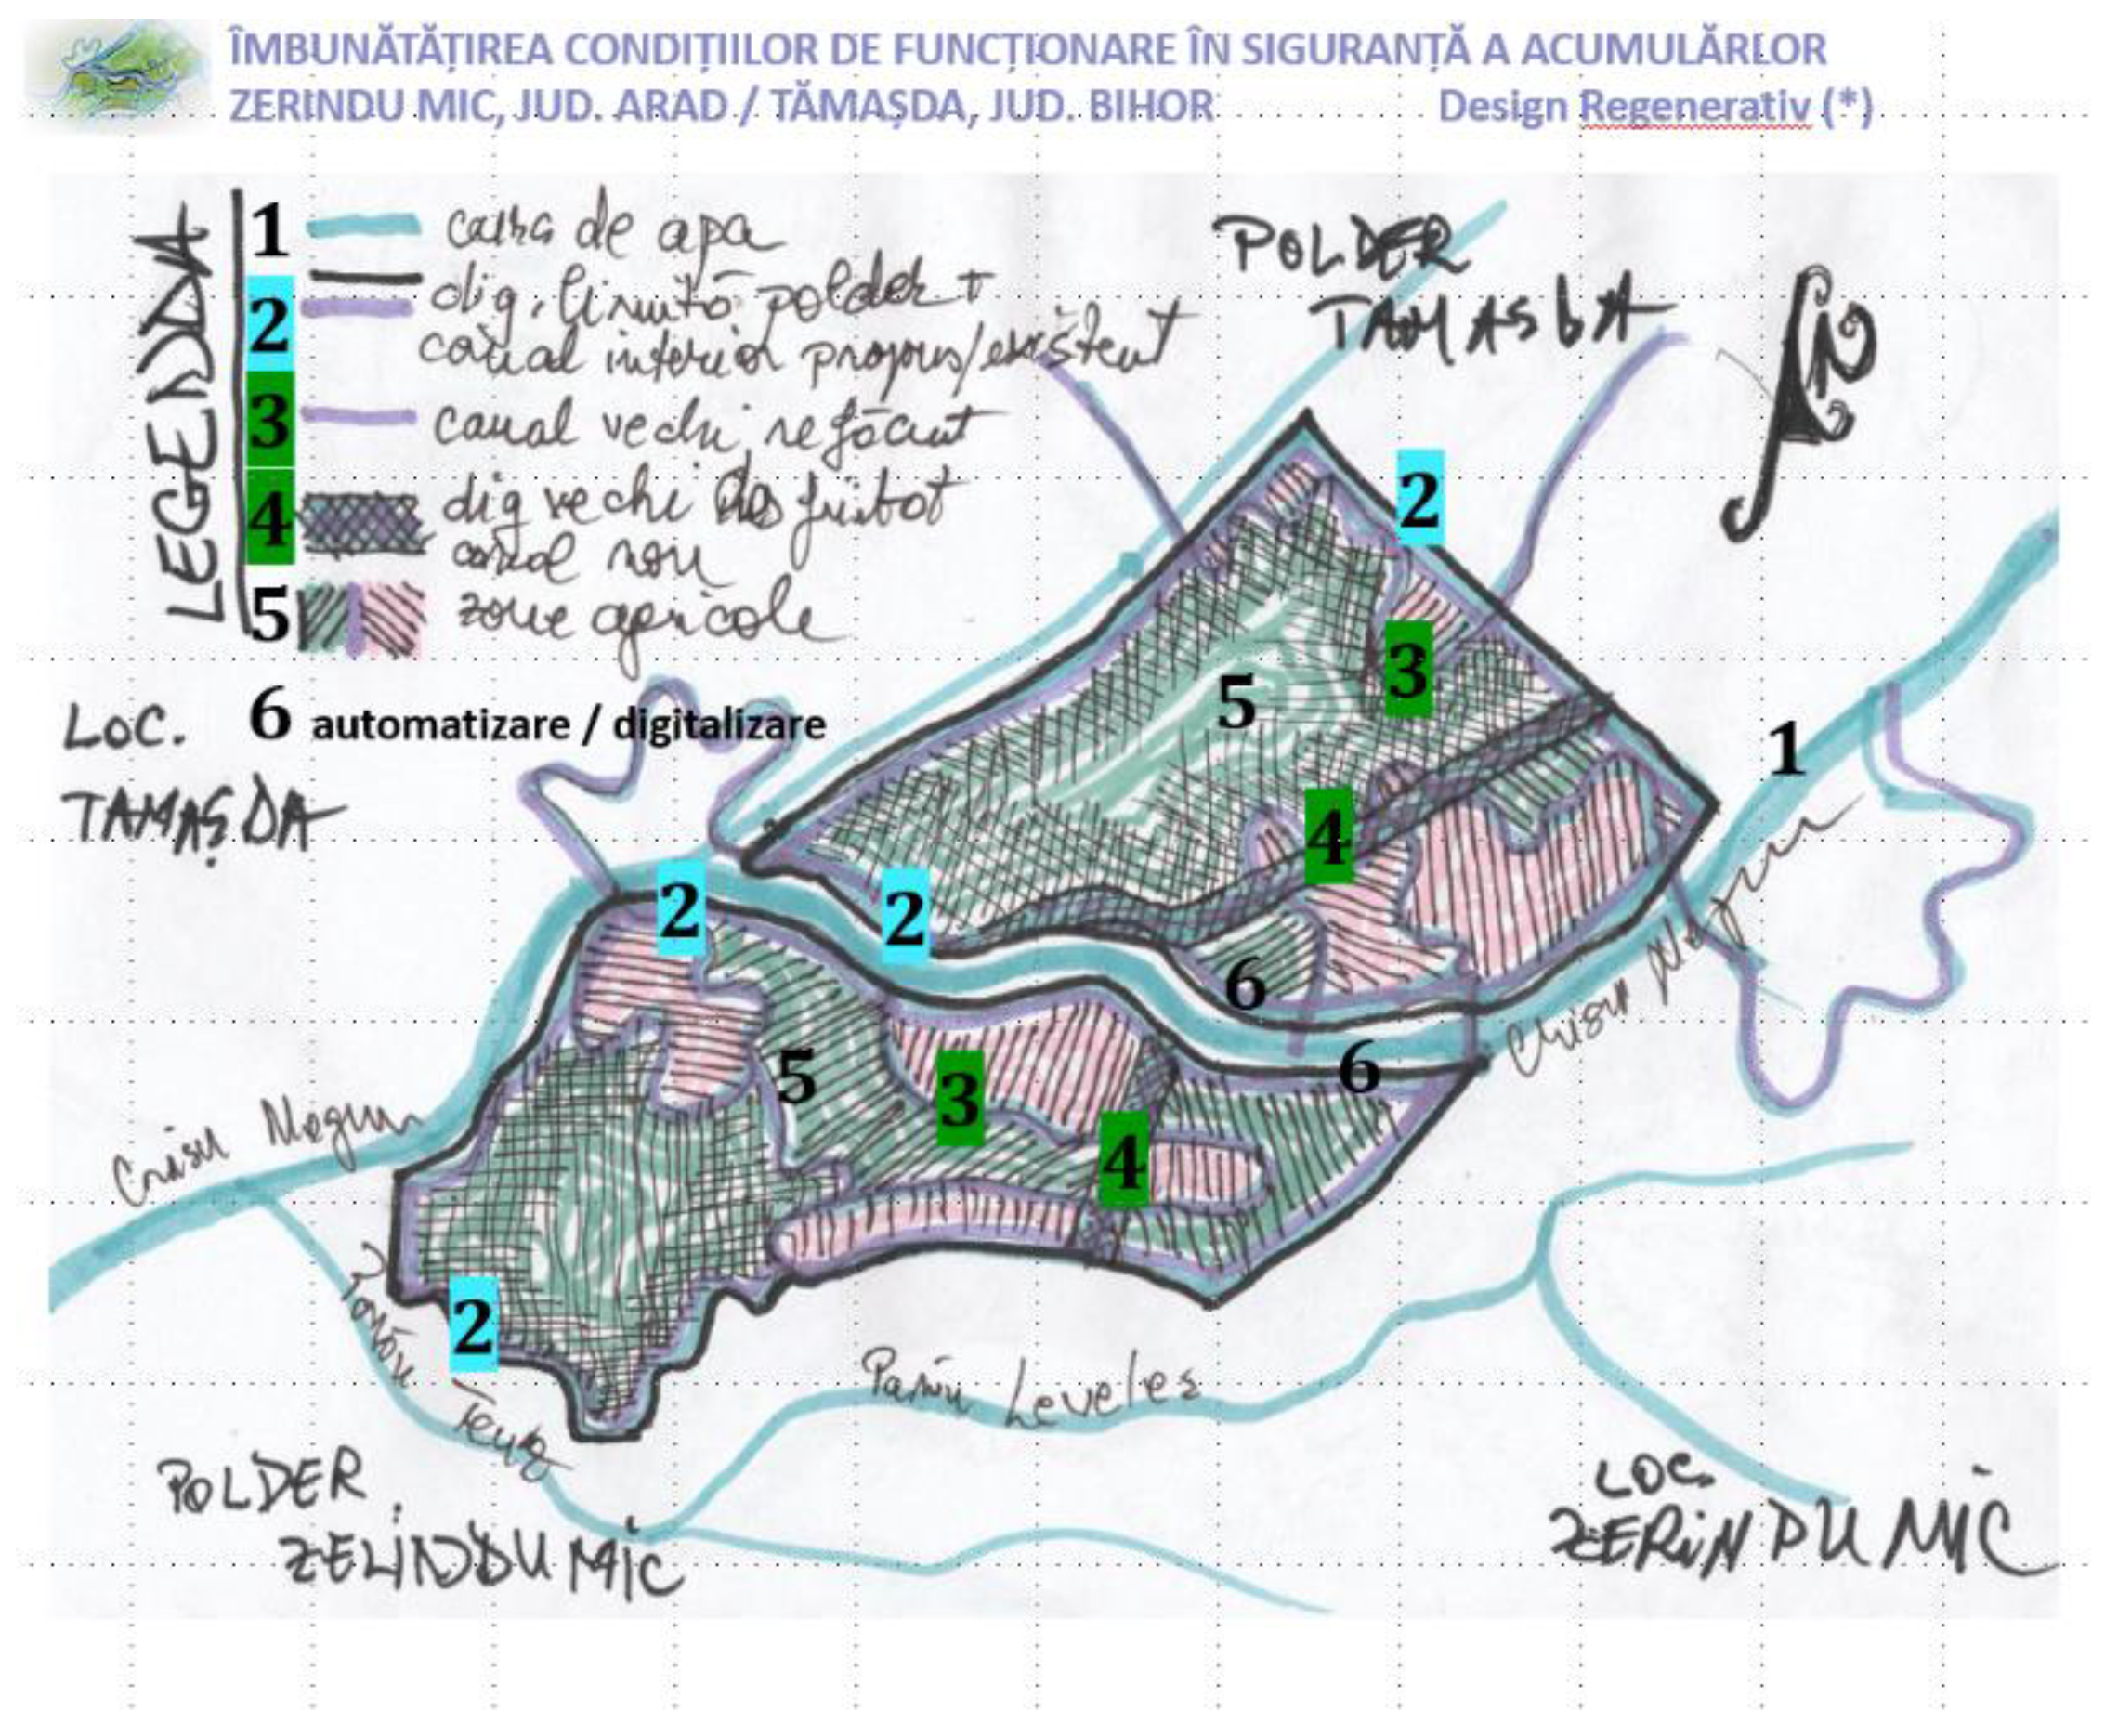 ÎMBUNĂTĂȚIREA CONDIȚIILOR DE FUNCȚIONARE ÎN SIGURANȚĂ A ACUMULĂRLOR
ZERINDU MIC, JUD. ARAD / TĂMAȘDA, JUD. BIHOR Design Regenerativ (*)
LEGENDA
1 curs de apa
2 dig, limită polder +
canal interior propus/existent
3 canal vechi refăcut
4 dig vechi
canal nou
5 zone agricole
6 automatizare / digitalizare
POLDER
TAMASDA
N
LOC.
TAMAȘDA
2
3
5
1
4
2
2
6
Crisu Negru
5
3
6
4
Crisu Negru
2
Teuz
Pariu Leveles
POLDER
ZELINDU MIC
LOC.
ZERINDU MIC